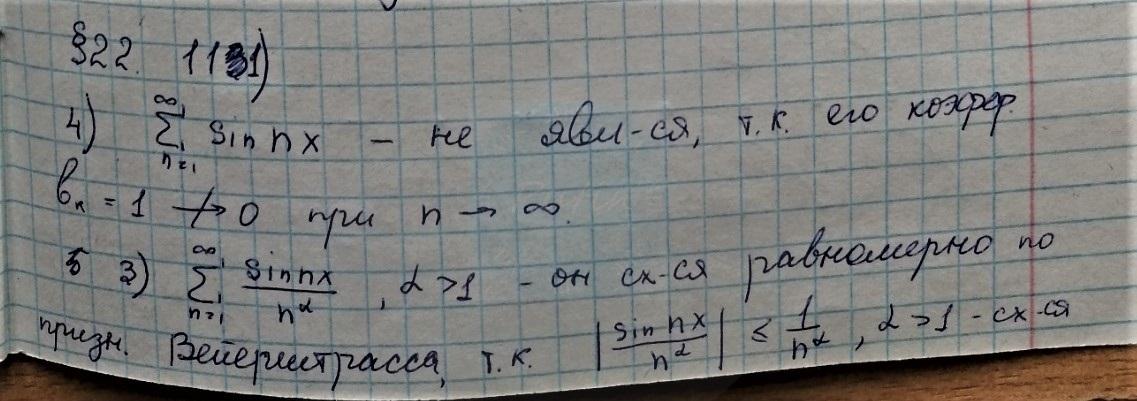 §22. 1131)
4) ∞ Σ n=1 sin nx – не явл-ся, т.к. его коэфф.
bₙ = 1 ↛ 0 при n → ∞.
5 3) ∞ Σ n=1 sin nx / n^α , α > 1 – он сх-ся равномерно по
призн. Вейерштрасса, т.к. | sin nx / n^α | ≤ 1 / n^α , α > 1 – сх-ся